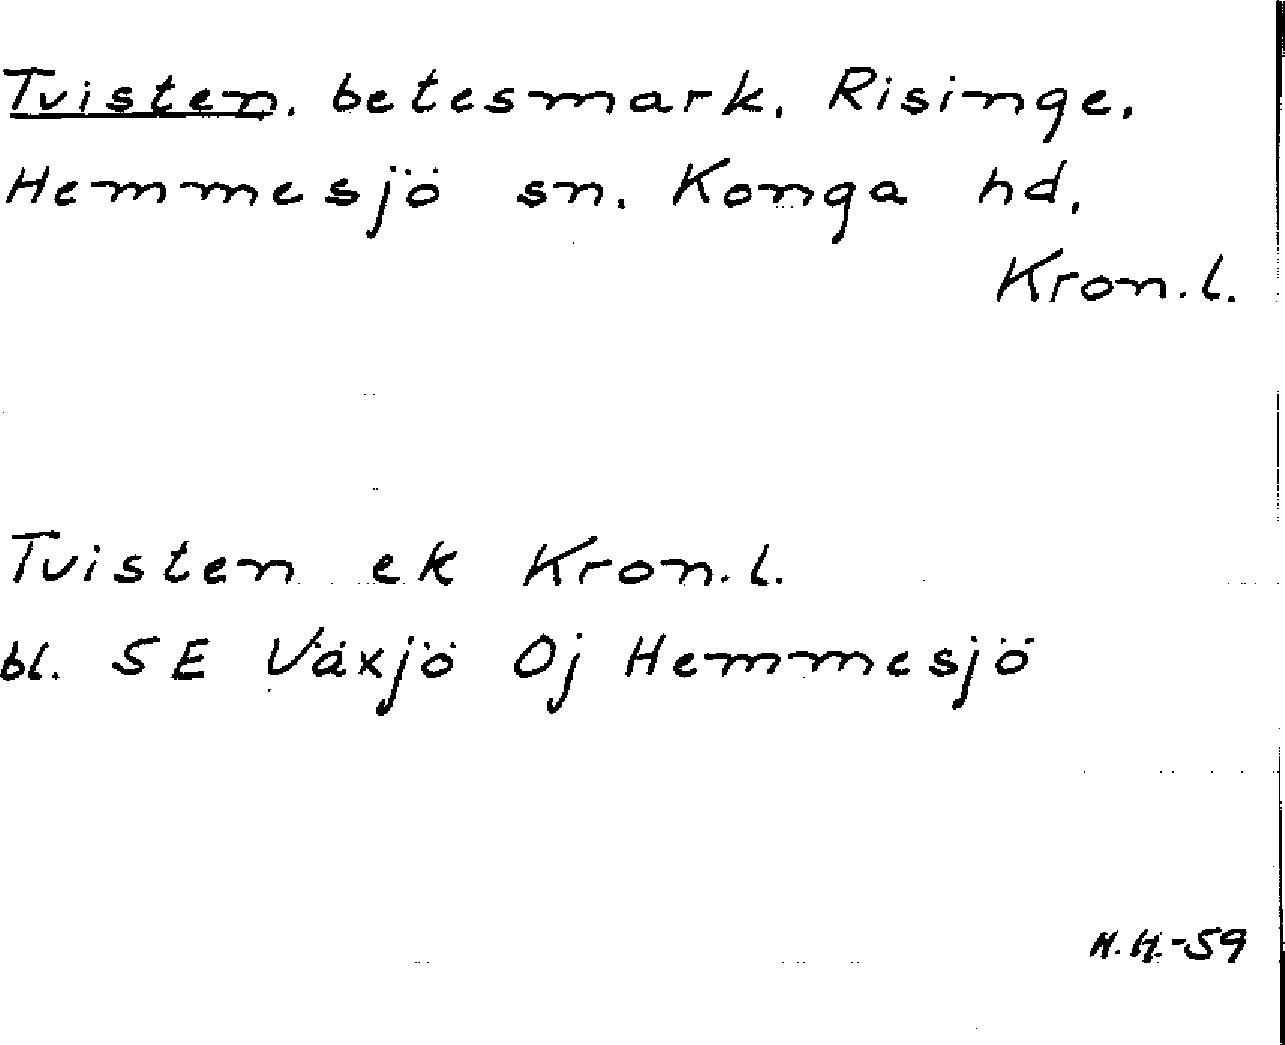 Tvisten, betesmark, Risinge,
Hemmesjö sn. Konga hd,
Kron.l.
Tvisten ek Kron.l.
bl. SE Växjö Oj Hemmesjö
H.H.-59